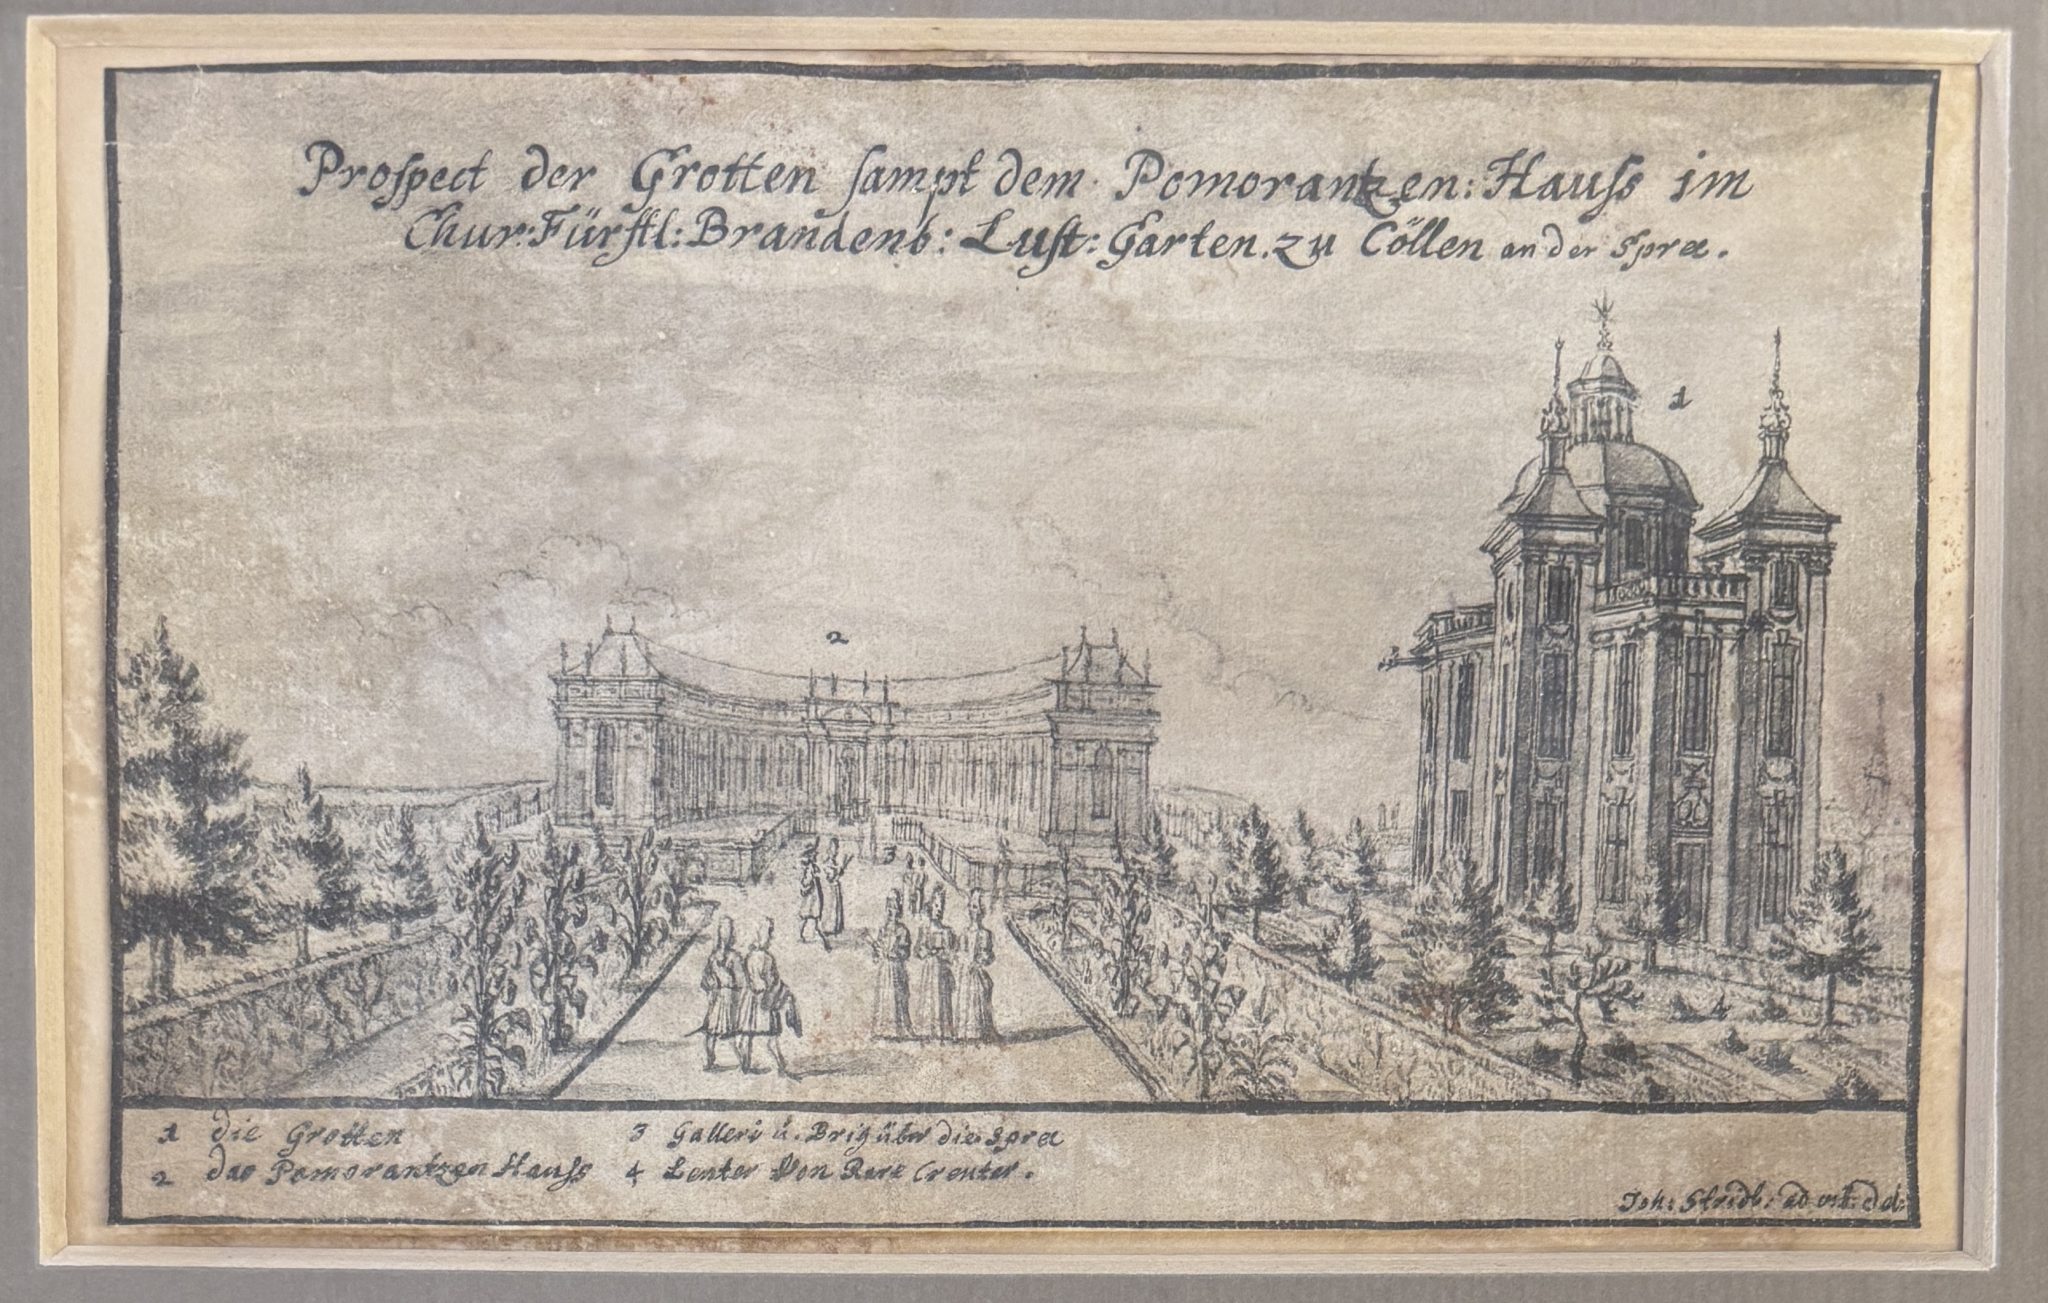 Prospect der Grotten sampt dem Pomorantzen: Hauss im
Chur: Fürstl: Brandenb: Lust: Garten. zu Cöllen an der Spree.
1
2
3
4
1 die Grotten
2 das Pomorantzen Hauss
3 Galleri ü. Brig über die Spree
4 Von Rare
Joh: Stridb: ad vit: del: